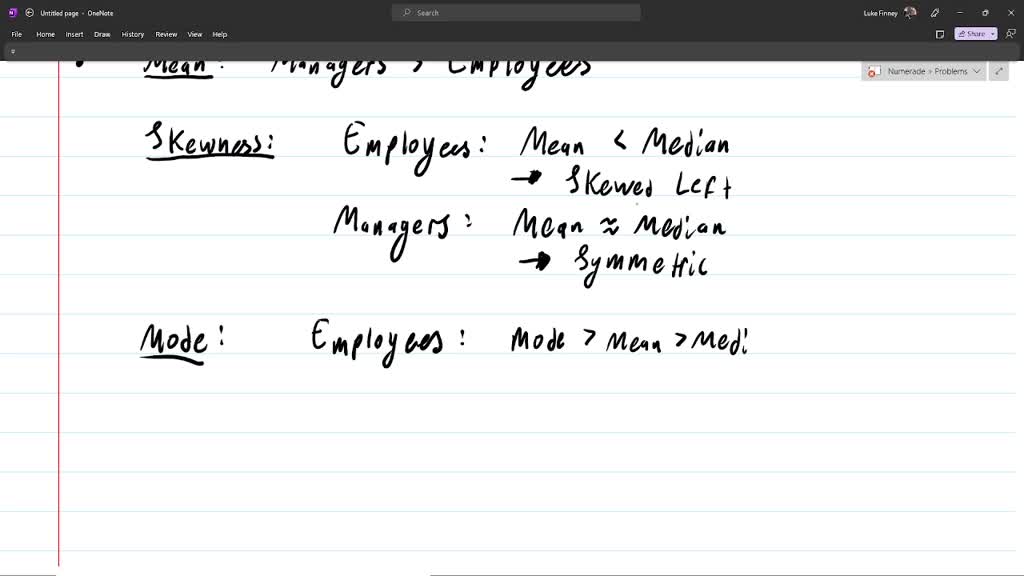 Untitled page - OneNote
Search
Luke Finney
File Home Insert Draw History Review View Help
Share
Mean: Managers > Employees
Numerade » Problems
Skewness: Employees: Mean < Median
→ Skewed Left
Managers: Mean ≈ Median
→ Symmetric
Mode: Employees: Mode > Mean > Medi